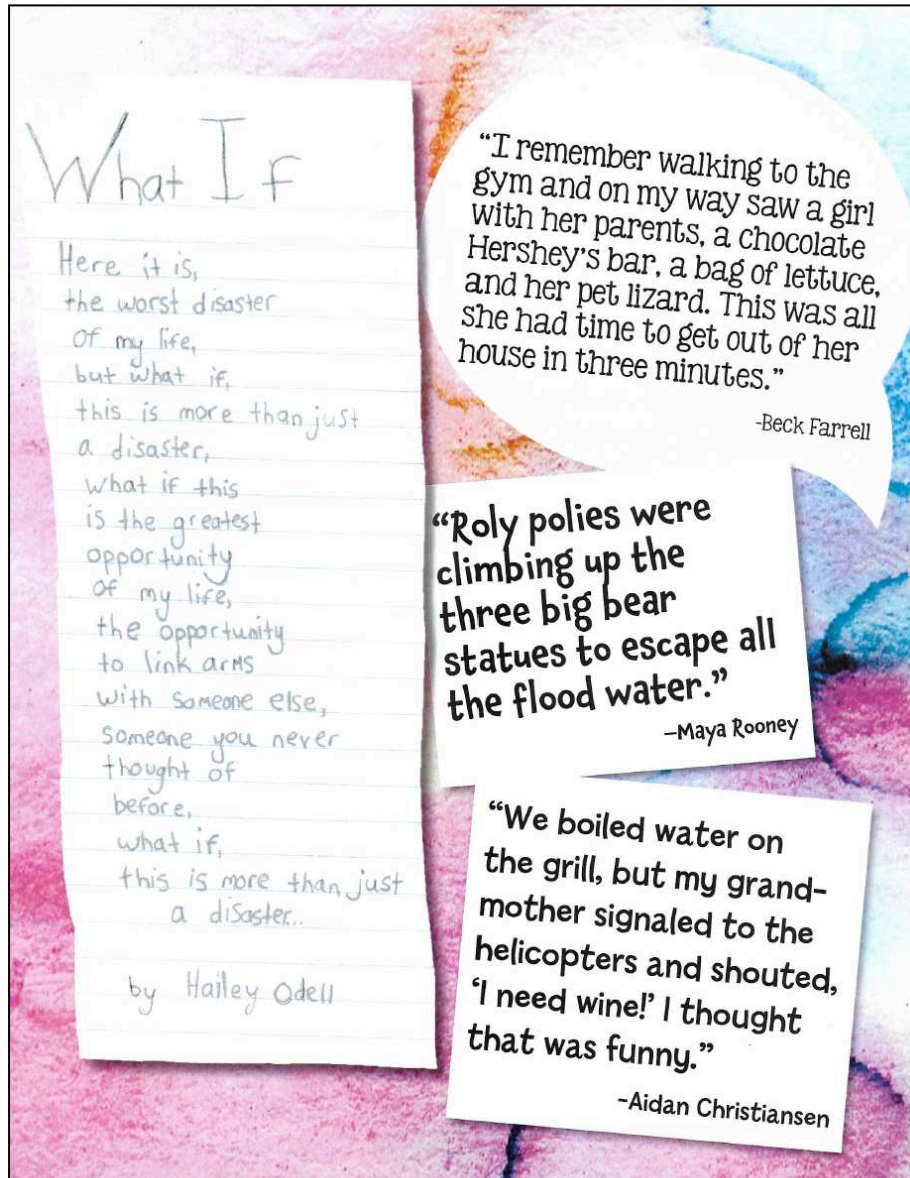 What If
Here it is,
the worst disaster
of my life,
but what if,
this is more than just
a disaster,
what if this
is the greatest
opportunity
of my life,
the opportunity
to link arms
with someone else,
someone you never
thought of
before,
what if,
this is more than just
a disaster...
by Hailey Odell
“I remember walking to the
gym and on my way saw a girl
with her parents, a chocolate
Hershey’s bar, a bag of lettuce,
and her pet lizard. This was all
she had time to get out of her
house in three minutes.”
-Beck Farrell
“Roly polies were
climbing up the
three big bear
statues to escape all
the flood water.”
—Maya Rooney
“We boiled water on
the grill, but my grand-
mother signaled to the
helicopters and shouted,
‘I need wine!’ I thought
that was funny.”
-Aidan Christiansen